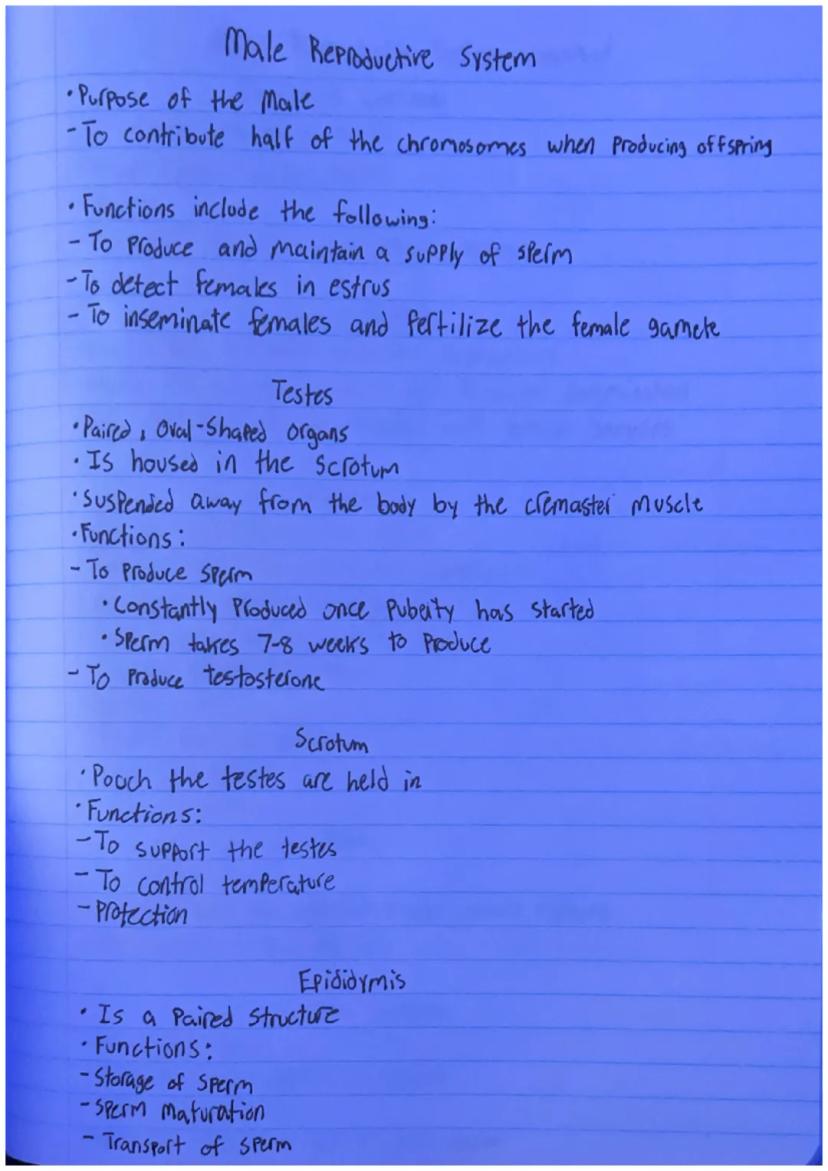 Male Reproductive System
• Purpose of the Male
- To contribute half of the chromosomes when producing offspring
• Functions include the following:
- To produce and maintain a supply of sperm
- To detect females in estrus
- To inseminate females and fertilize the female gamete
Testes
• Paired, Oval-Shaped Organs
• Is housed in the Scrotum
• Suspended away from the body by the cremaster muscle
• Functions:
- To produce sperm
• Constantly Produced once Puberty has started
• Sperm takes 7-8 weeks to Produce
- To Produce testosterone
Scrotum
• Pooch the testes are held in
• Functions:
- To support the testes
- To control temperature
- Protection
Epididymis
• Is a Paired Structure
• Functions:
- Storage of sperm
- Sperm maturation
- Transport of sperm